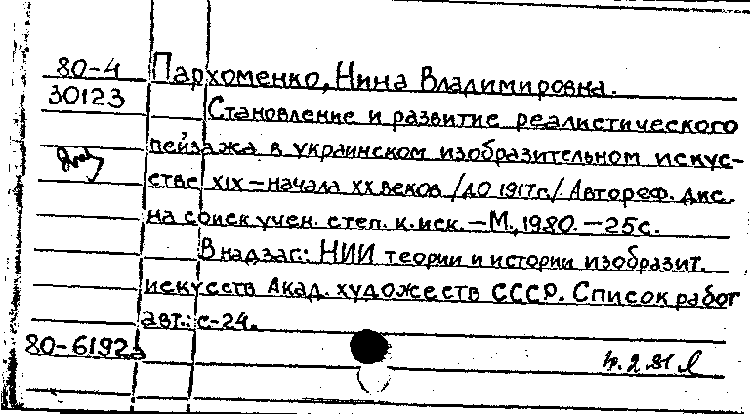 80-4 Пархоменко, Нина Владимировна.
30123 Становление и развитие реалистического
пейзажа в украинском изобразительном искус-
стве XIX – начала XX веков /до 1917г./ Автореф. дис.
на соиск. учен. степ. к. иск. – М., 1980. – 25с.
В надзаг.: НИИ теории и истории изобразит.
искусств Акад. художеств СССР. Список работ
авт.: с-24.
80-6192